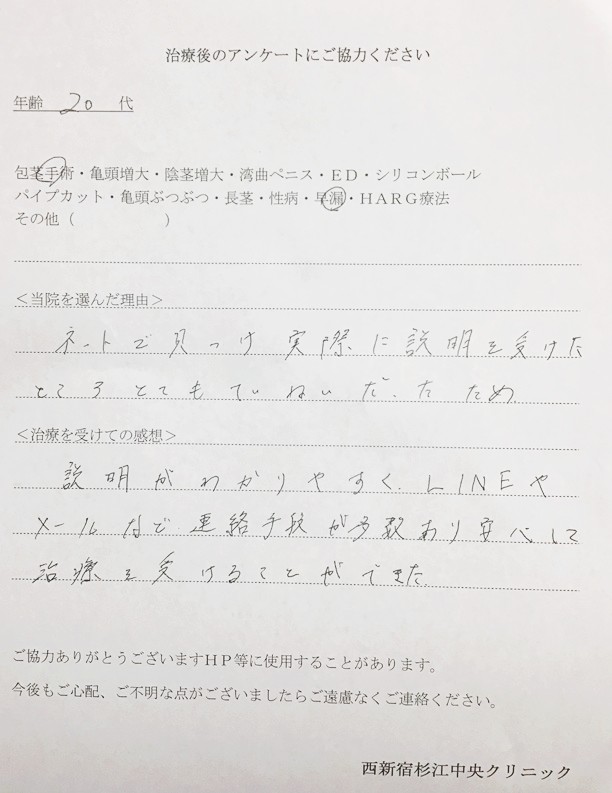 治療後のアンケートにご協力ください
年齢 20 代
包茎手術・亀頭増大・陰茎増大・湾曲ペニス・ED・シリコンボール
パイプカット・亀頭ぶつぶつ・長茎・性病・早漏・HARG療法
その他（　　　　　　）
＜当院を選んだ理由＞
ネットで見つけ実際に説明を受けた
ところとてもていねいだったため
＜治療を受けての感想＞
説明がわかりやすく、LINEや
メールなど連絡手段が多数あり安心して
治療を受けることができた。
ご協力ありがとうございますHP等に使用することがあります。
今後もご心配、ご不明な点がございましたらご遠慮なくご連絡ください。
西新宿杉江中央クリニック